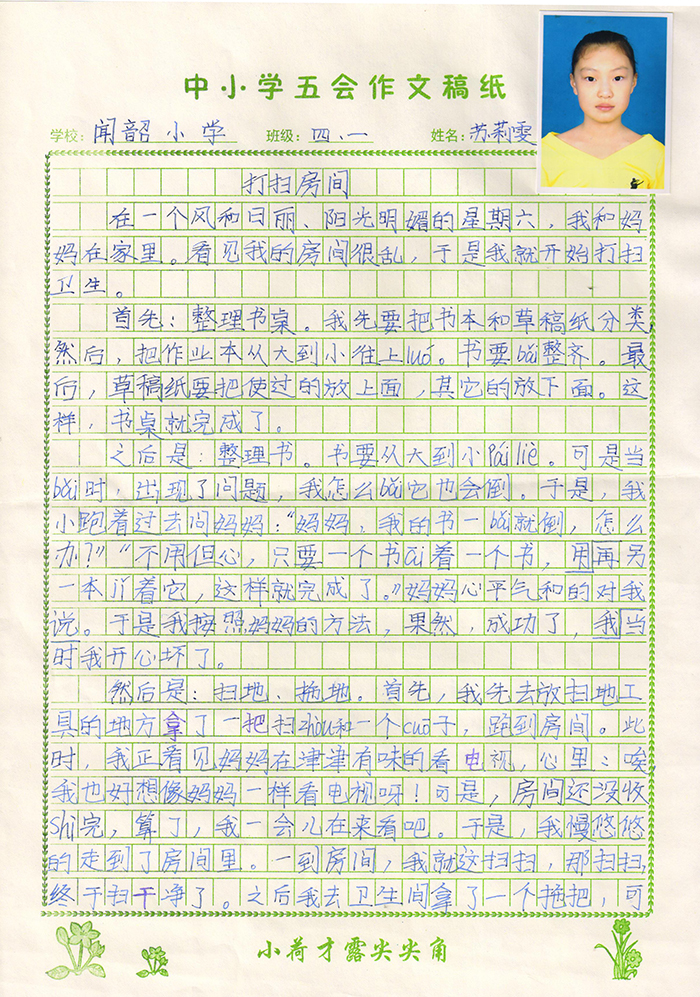 中小学五会作文稿纸
学校：闻韶小学 班级：四、一 姓名：苏莉雯
打扫房间
在一个风和日丽、阳光明媚的星期六，我和妈
妈在家里。看见我的房间很乱，于是我就开始打扫
卫生。
首先：整理书桌。我先要把书本和草稿纸分类
然后，把作业本从大到小往上luó。书要bǎi整齐。最
后，草稿纸要把使过的放上面，其它的放下面。这
样，书桌就完成了。
之后是：整理书。书要从大到小Pái liè。可是当
bǎi时，出现了问题，我怎么bǎi它也会倒。于是，我
小跑着过去问妈妈：“妈妈，我的书一bǎi就倒，怎么
办？”“不用但心，只要一个书āi着一个书，用再另
一本jǐ着它，这样就完成了。”妈妈心平气和的对我
说。于是我按照妈妈的方法，果然，成功了，我当
时我开心坏了。
然后是：扫地、拖地。首先，我先去放扫地工
具的地方拿了一把扫zhǒu和一个cuō子，跑到房间。此
时，我正看见妈妈在津津有味的看电视，心里：唉
我也好想像妈妈一样看电视呀！可是，房间还没收
Shi完，算了，我一会儿在来看吧。于是，我慢悠悠
的走到了房间里。一到房间，我就这扫扫，那扫扫，
终于扫干净了。之后我去卫生间拿了一个拖把，可
小荷才露尖尖角